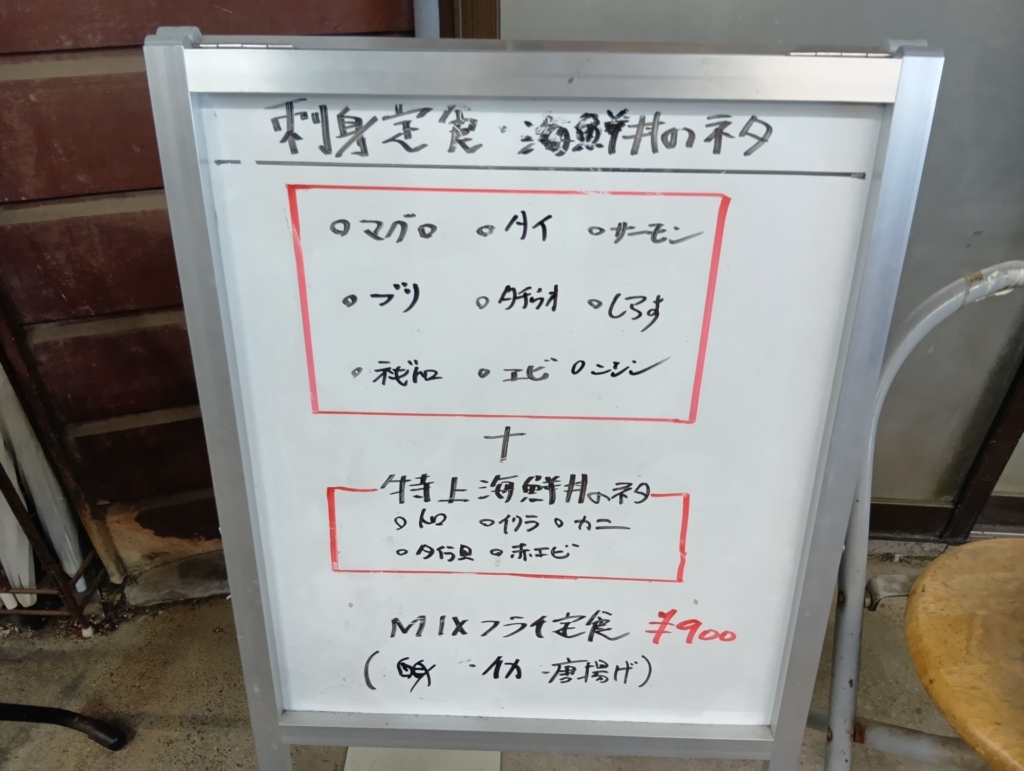 刺身定食・海鮮丼のネタ
○マグロ ○タイ ○サーモン
○ブリ ○タチウオ ○しらす
○ネギトロ ○エビ ○ニシン
+
特上海鮮丼のネタ
○トロ ○イクラ ○カニ
○タイラ貝 ○赤エビ
MIXフライ定食 ¥900
( ・イカ ・唐揚げ)